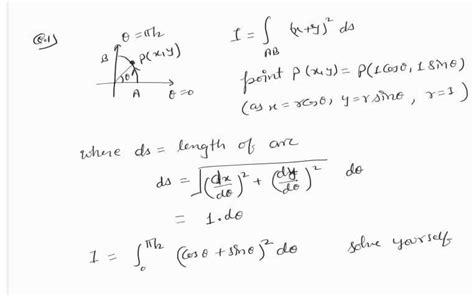 Q.1)
θ = π/2
B
P(x,y)
θ
A
θ=0
I = ∫_{AB} (x+y)² ds
point P(x,y) = P(1Cosθ, 1Sinθ)
(as x = rcosθ, y = r sinθ, r=1)
where ds = length of arc
ds = √((dx/dθ)² + (dy/dθ)²) dθ
= 1.dθ
I = ∫_0^{π/2} (cosθ + sinθ)² dθ solve yourself